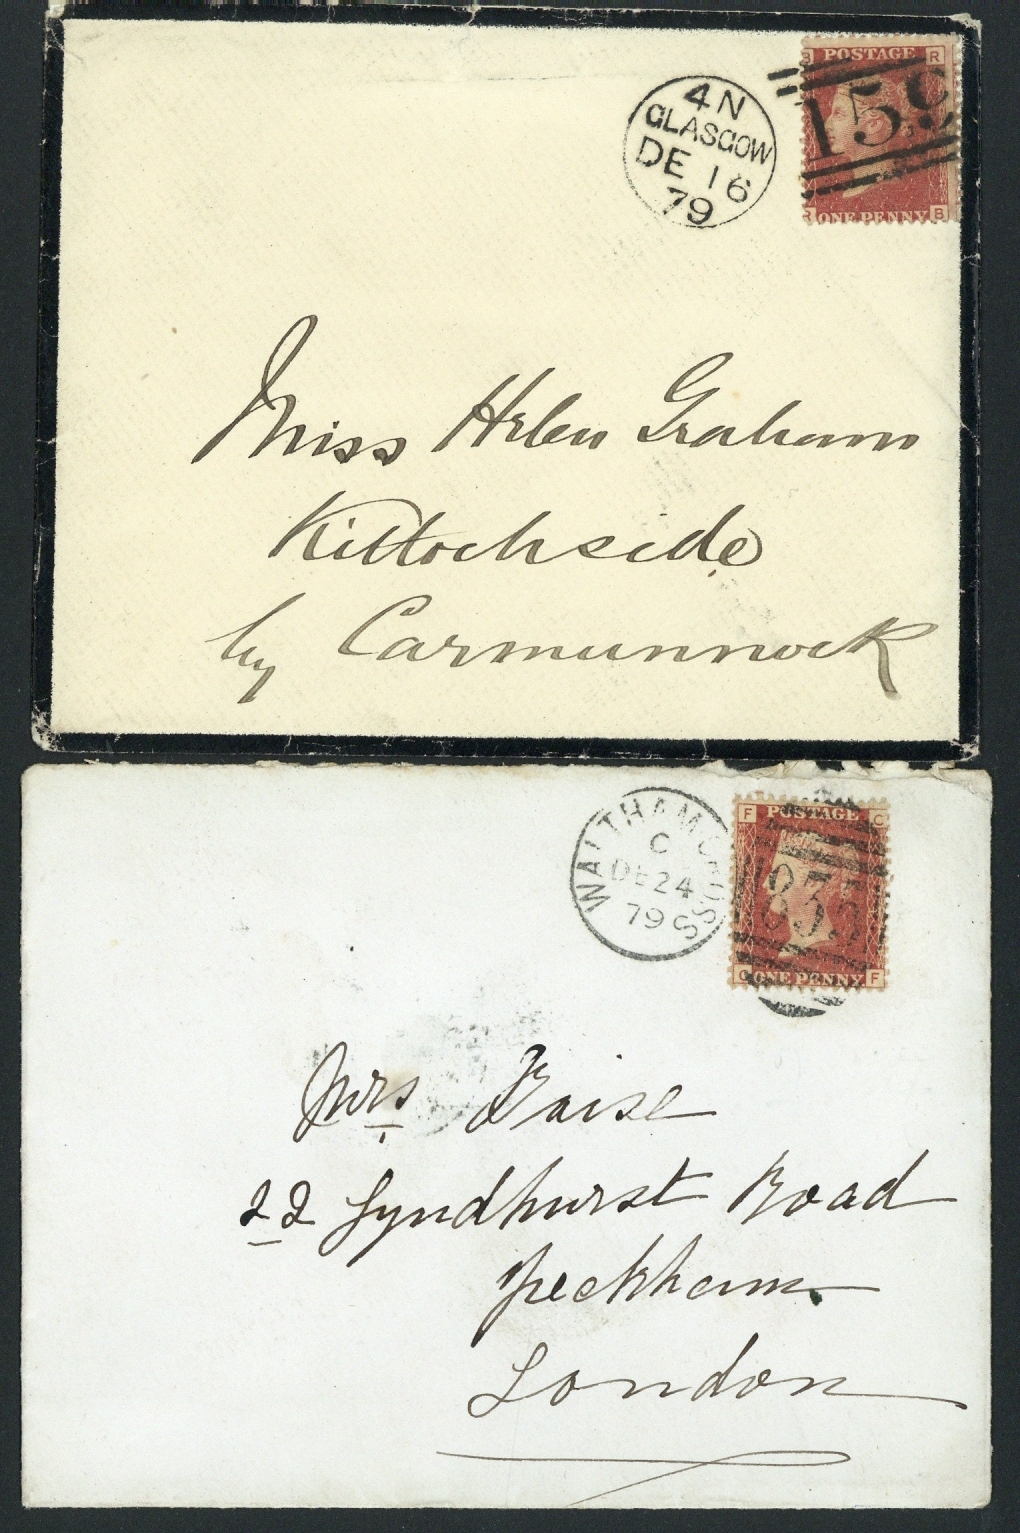 4N
GLASGOW
DE 16
79
B POSTAGE R
159
R ONE PENNY B
Miss Helen Graham
Kittochside
by Carmunnock
WALTHAM CROSS
C
DE 24
79
F POSTAGE C
835
C ONE PENNY F
Mrs
22 Lyndhurst Road
Peckham
London